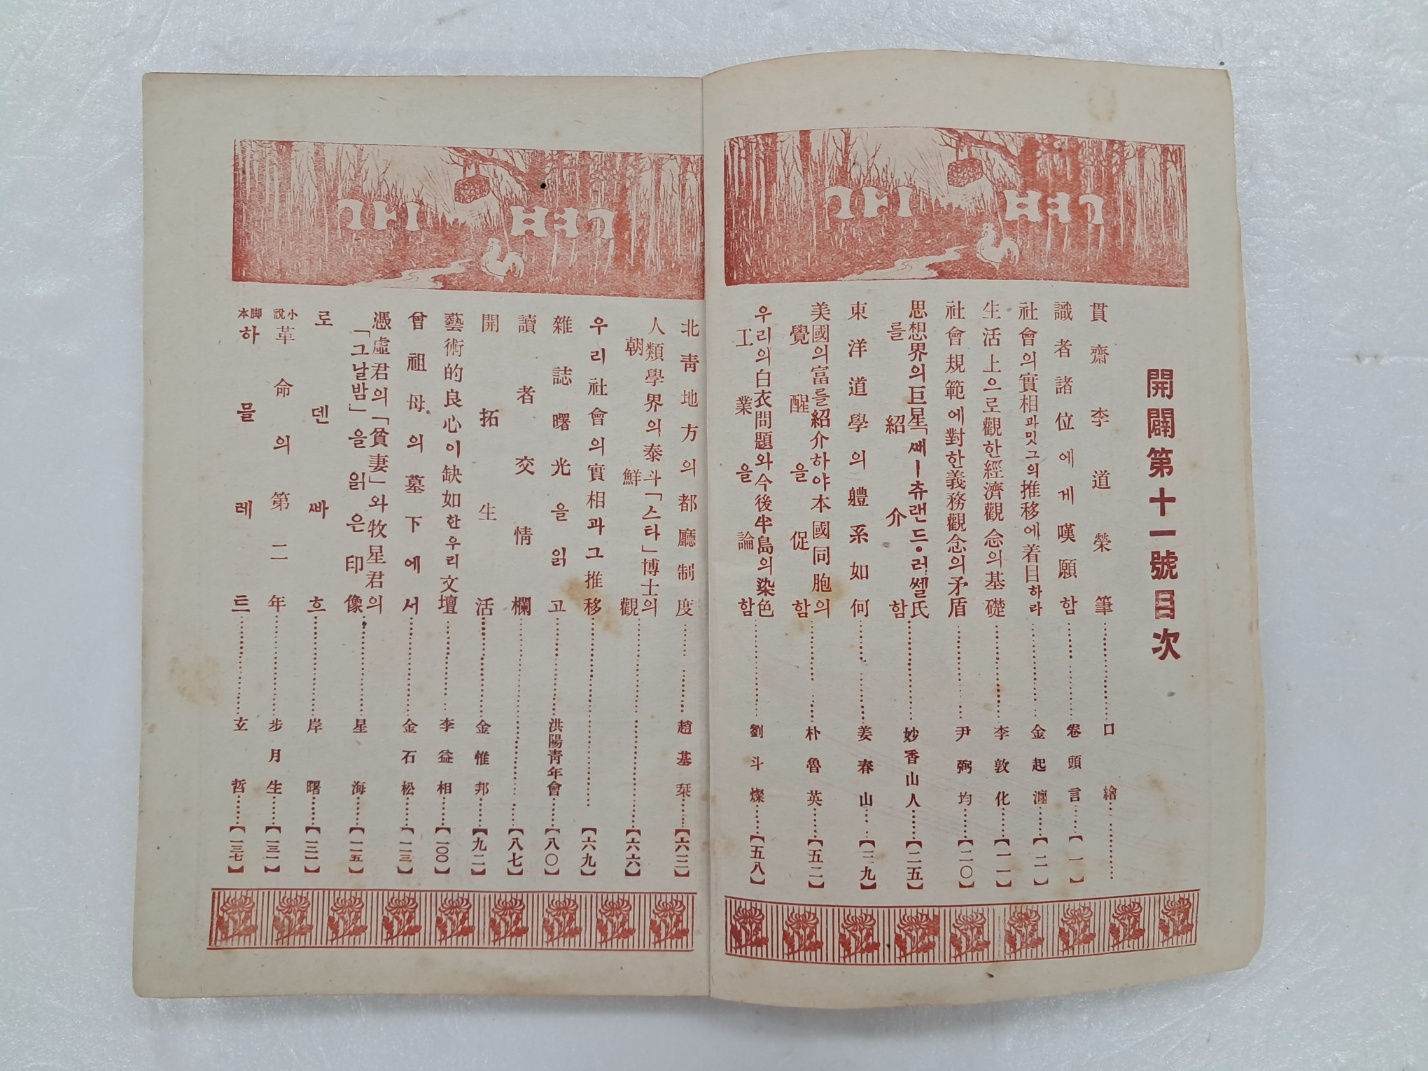 開闢第十一號目次
貫齋李道榮筆…………口繪…………
識者諸位에게嘆願함…………卷頭言……【一】
社會의實相과밋그의推移에着目하라…………金起瀍……【二】
生活上으로觀한經濟觀念의基礎…………李敦化……【一一】
社會規範에對한義務觀念의矛盾…………尹弼均……【二〇】
思想界의巨星「뻐ー츄랜드·러쎌氏
를紹介함…………妙香山人……【二五】
東洋道學의軆系如何…………姜春山……【三九】
美國의富를紹介하야本國同胞의
覺醒을促함…………朴魯英……【五二】
우리의白衣問題와今後半島의染色
工業을論함…………劉斗燦……【五八】
北靑地方의都廳制度…………趙基栞……【六三】
人類學界의泰斗「스타」博士의
朝鮮觀…………【六六】
우리社會의實相과그推移…………【六九】
雜誌曙光을읽고…………洪陽靑年會……【八〇】
讀者交情欄…………【八七】
開拓生活…………金惟邦……【九二】
藝術的良心이缺如한우리文壇…………李益相……【一〇〇】
曾祖母의墓下에서…………金石松……【一一三】
憑虛君의「貧妻」와牧星君의
「그날밤」을읽은印像…………星海……【一一五】
로덴빠흐…………岸曙……【一二一】
小說 革命의第二年…………步月生……【一三一】
脚本 하믈레트…………玄哲……【一三七】